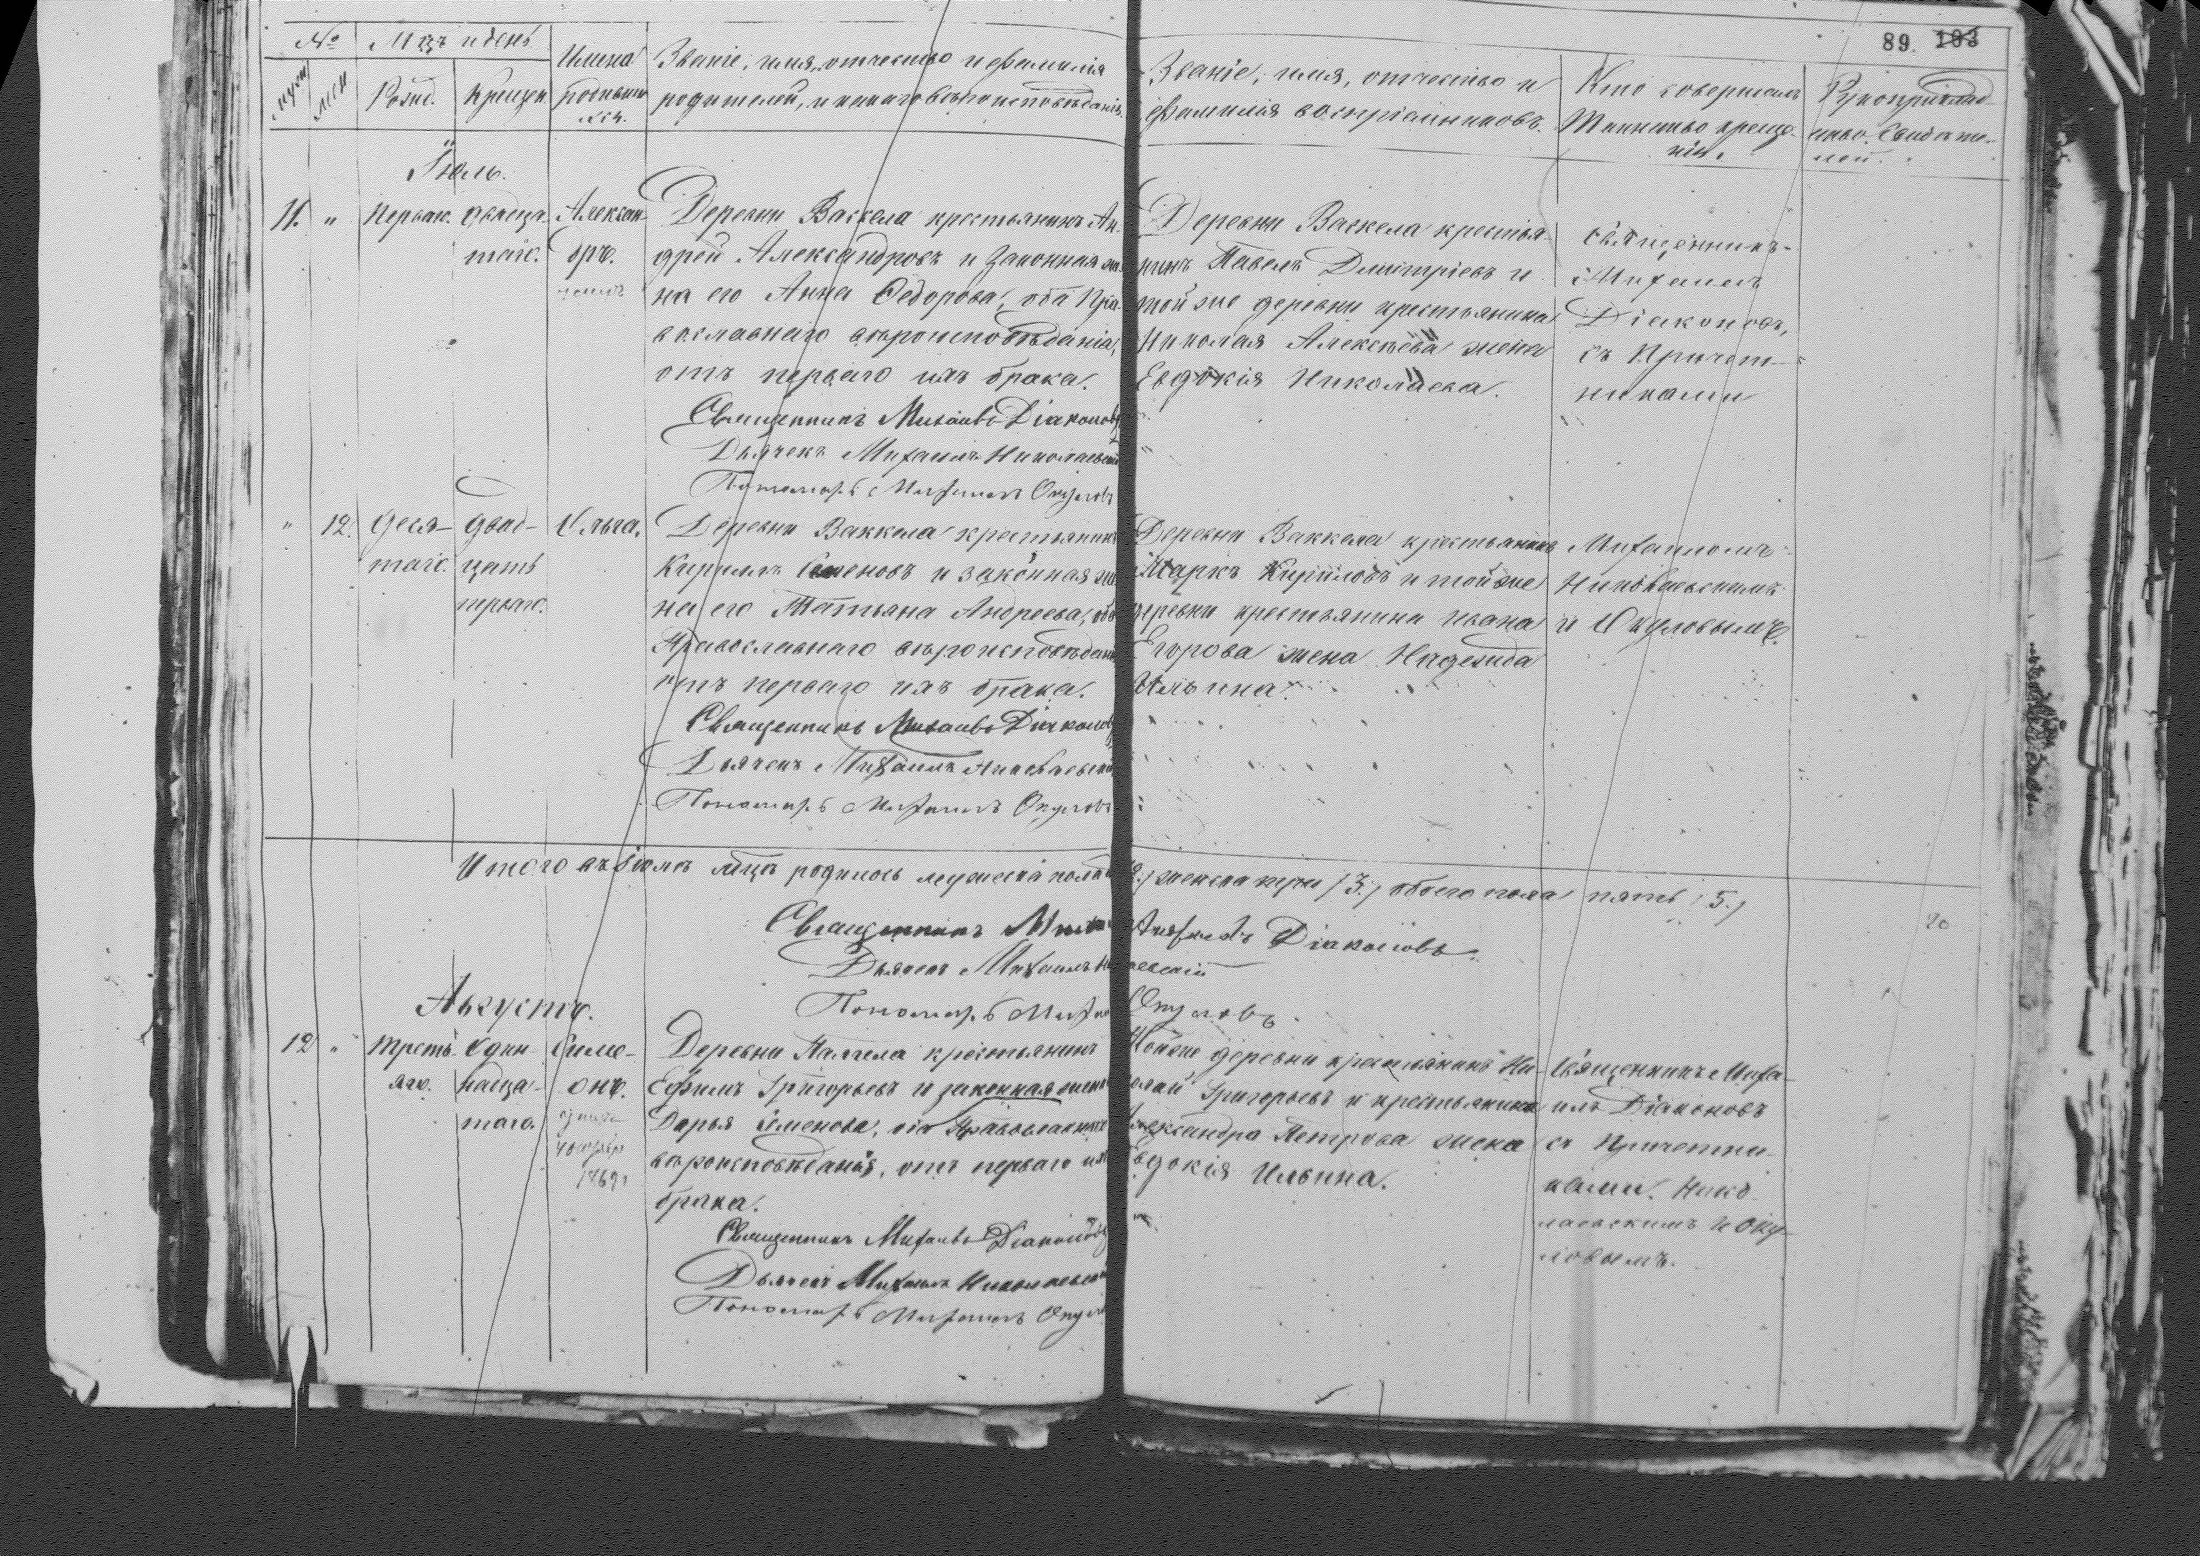 89. 103
№
Мцъ и день
Имена
Званіе, имя, отчество и фамилія
Званіе, имя, отчество и
Кто совершалъ
муж
жен
Рожд.
Крещен.
родившихся.
родителей, и какаго вѣроисповѣданія.
фамилія воспріемниковъ.
Таинство крещенія.
Іюль.
11. " Перваго. двадцатаго. Александръ.
Деревни Васкела крестьянинъ Ан-
дрей Александровъ и законная же-
на его Анна Ѳедорова, оба Пра-
вославнаго вѣроисповѣданія,
отъ перваго ихъ брака.
Священникъ Михаилъ Діаконовъ
Дьячекъ Михаилъ Николаевскій
Пономарь Михаилъ Окуловъ
Деревни Васкела крестья-
нинъ Павелъ Дмитріевъ и
той же деревни крестьянина
Николая Алексѣева жена
Евдокія Николаева.
Священникъ
Михаилъ
Діаконовъ,
съ Причет-
никами
" 12. Деся-
таго.
двад-
цать
перваго.
Ольга.
Деревни Ваккела крестьянинъ
Кириллъ Семеновъ и законная же-
на его Татьяна Андреева, оба
Православнаго вѣроисповѣданія
отъ перваго ихъ брака.
Священникъ Михаилъ Діаконовъ
Дьячекъ Михаилъ Николаевскій
Пономарь Михаилъ Окуловъ
Деревни Ваккела крестьянинъ
Маркъ Кириловъ и той же
деревни крестьянина Ивана
Егорова жена Надежда
Ильина.
Михаиломъ
Николаевскимъ
и Окуловымъ.
Итого въ Іюлѣ мцѣ родилось мужеска пола женска три /3./ обоего пола пять /5./
Священникъ Михаилъ Діаконовъ.
Дьячекъ Михаилъ Николаевскій
Пономарь Михаилъ Окуловъ.
20
Августъ.
12 " Треть-
яго.
Один-
надца-
таго.
Симе-
онъ.
Деревни крестьянинъ
Ефимъ Григорьевъ и законная жена
Дарья Семенова, оба Православнаго
вѣроисповѣданія, отъ перваго ихъ
брака.
Священникъ Михаилъ Діаконовъ
Дьячекъ Михаилъ Николаевскій
Пономарь Михаилъ Окуловъ
Той же деревни крестьянинъ Ни-
колай Григорьевъ и крестьянина
Александра Петрова жена
Евдокія Ильина.
Священникъ Миха-
илъ Діаконовъ
съ Причетни-
ками. Нико-
лаевскимъ и Оку-
ловымъ.